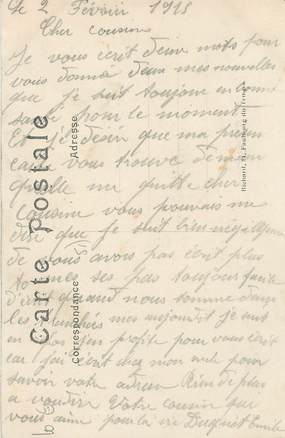 le 2 Février 1915
Cher cousine
Je vous écrit deux mots pour
vous donné deux mes nouvelles
que je suit toujour en bonne
santé pour le moment
Et je désir que ma présen
carte vous trouve de même
quelle me quitte cher
cousine vous pouvais me
dire que je suit bien
de vous avois pas écrit plus
ses pas toujour facile
quant nous somme dans
les mes aujourd'hui je suit
profite pour vous écrit
car chez mon oncle pour
savoir votre adresse Rien de plus
a vous dire Votre cousin qui
vous aime pour la vie Duquet Emile
Carte Postale
Correspondance
Adresse